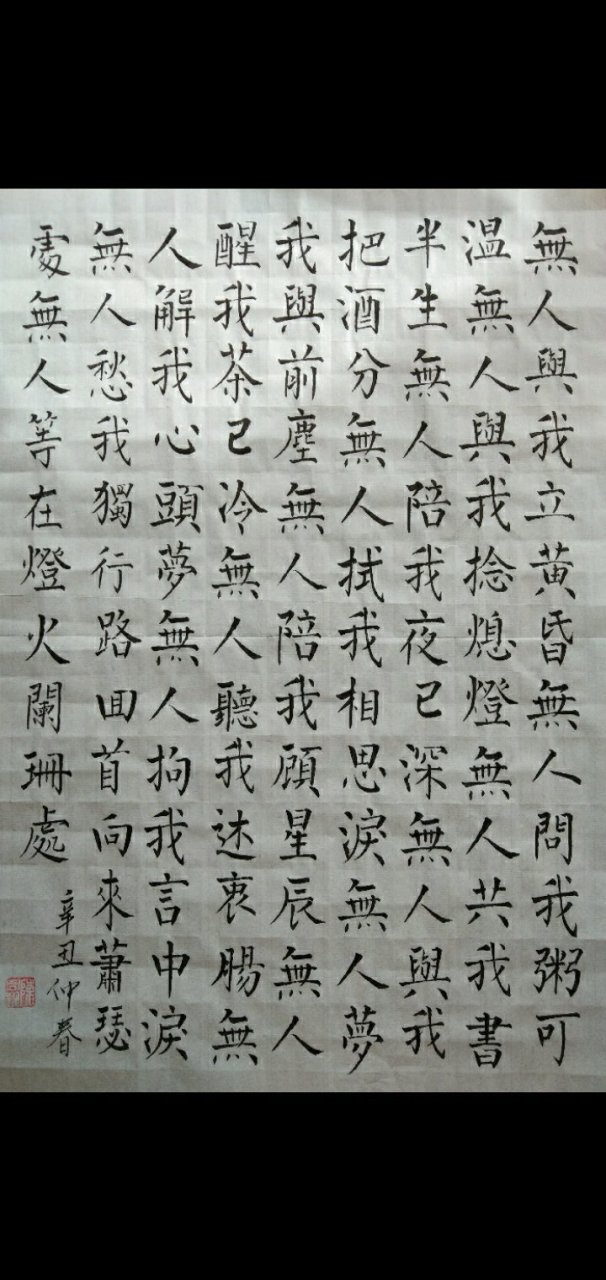 無人與我立黃昏無人問我粥可
温無人與我捻熄燈無人共我書
半生無人陪我夜已深無人與我
把酒分無人拭我相思淚無人夢
我與前塵無人陪我顧星辰無人
醒我茶已冷無人聽我述衷腸無
人解我心頭夢無人拘我言中淚
無人愁我獨行路回首向來蕭瑟
處無人等在燈火闌珊處
辛丑仲春